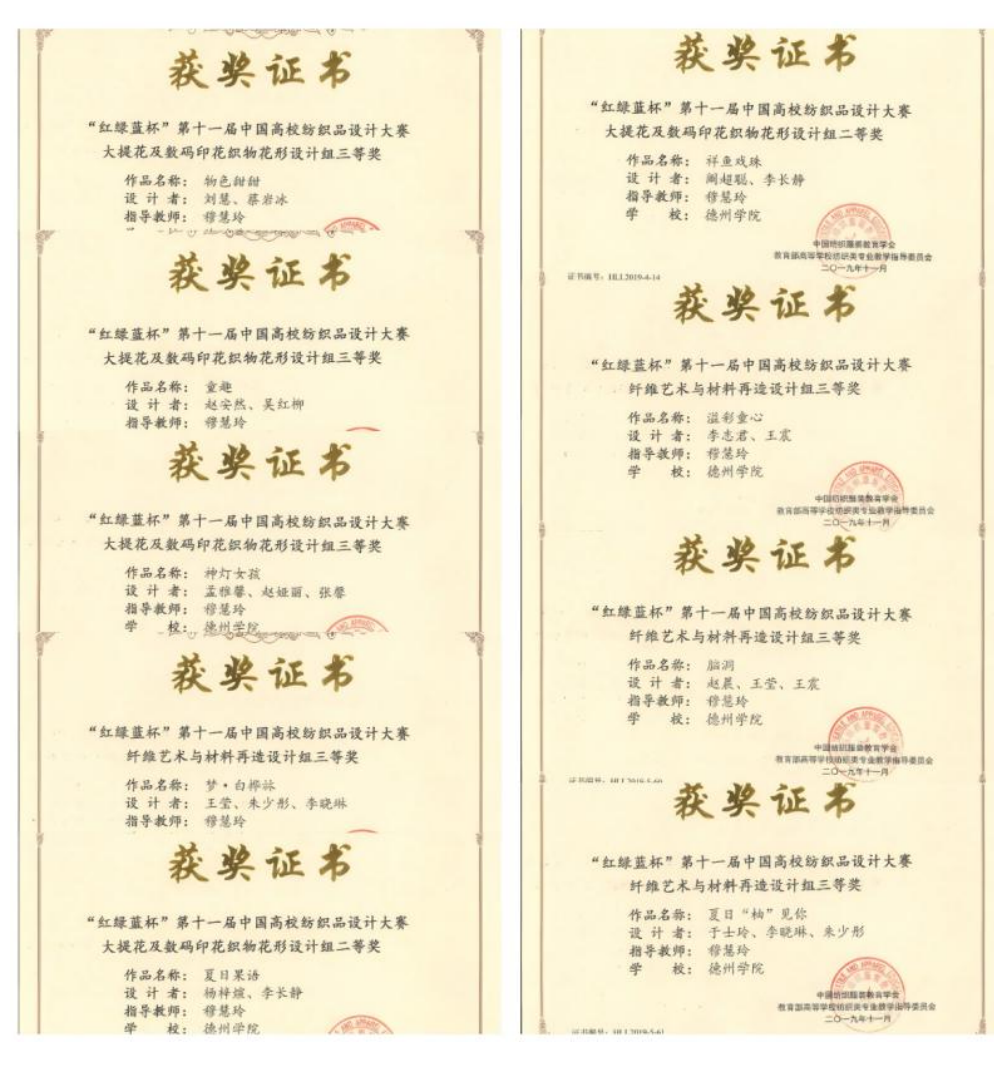 获奖证书
“红绿蓝杯”第十一届中国高校纺织品设计大赛
大提花及数码印花织物花形设计组三等奖
作品名称： 物色甜甜
设 计 者： 刘慧、蔡岩冰
指导教师： 穆慧玲
获奖证书
“红绿蓝杯”第十一届中国高校纺织品设计大赛
大提花及数码印花织物花形设计组三等奖
作品名称： 童趣
设 计 者： 赵安然、吴红柳
指导教师： 穆慧玲
获奖证书
“红绿蓝杯”第十一届中国高校纺织品设计大赛
大提花及数码印花织物花形设计组三等奖
作品名称： 神灯女孩
设 计 者： 孟雅馨、赵娅丽、张馨
指导教师： 穆慧玲
学 校： 德州学院
获奖证书
“红绿蓝杯”第十一届中国高校纺织品设计大赛
纤维艺术与材料再造设计组三等奖
作品名称： 梦·白桦林
设 计 者： 王莹、朱少彤、李晓琳
指导教师： 穆慧玲
获奖证书
“红绿蓝杯”第十一届中国高校纺织品设计大赛
大提花及数码印花织物花形设计组二等奖
作品名称： 夏日果语
设 计 者： 杨梓煊、李长静
指导教师： 穆慧玲
学 校： 德州学院
获奖证书
“红绿蓝杯”第十一届中国高校纺织品设计大赛
大提花及数码印花织物花形设计组二等奖
作品名称： 祥鱼戏珠
设 计 者： 阚超聪、李长静
指导教师： 穆慧玲
学 校： 德州学院
中国纺织服装教育学会
教育部高等学校纺织类专业教学指导委员会
二〇一九年十一月
证书编号：HLL2019-4-14
获奖证书
“红绿蓝杯”第十一届中国高校纺织品设计大赛
纤维艺术与材料再造设计组三等奖
作品名称： 溢彩童心
设 计 者： 李志君、王震
指导教师： 穆慧玲
学 校： 德州学院
中国纺织服装教育学会
教育部高等学校纺织类专业教学指导委员会
二〇一九年十一月
获奖证书
“红绿蓝杯”第十一届中国高校纺织品设计大赛
纤维艺术与材料再造设计组三等奖
作品名称： 脑洞
设 计 者： 赵晨、王莹、王震
指导教师： 穆慧玲
学 校： 德州学院
中国纺织服装教育学会
教育部高等学校纺织类专业教学指导委员会
二〇一九年十一月
证书编号：HLL2019-5-60
获奖证书
“红绿蓝杯”第十一届中国高校纺织品设计大赛
纤维艺术与材料再造设计组三等奖
作品名称： 夏日“柚”见你
设 计 者： 于士玲、李晓琳、朱少彤
指导教师： 穆慧玲
学 校： 德州学院
中国纺织服装教育学会
教育部高等学校纺织类专业教学指导委员会
二〇一九年十一月
证书编号：HLL2019-5-61